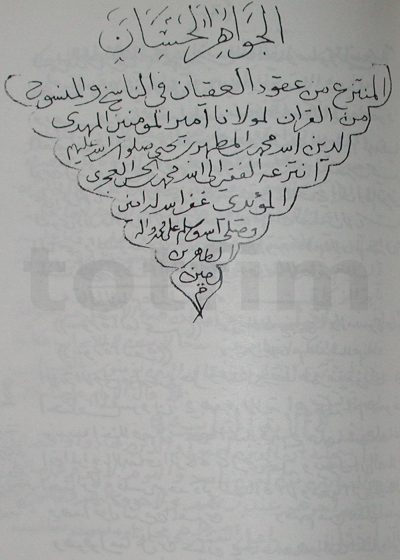 الجواهر الحسان
المنتزع من عقود العقيان في الناسخ والمنسوخ
من القران لمولانا أمير المؤمنين المهدي
لدين الله محمد بن المطهر بن يحيى صلوات الله عليهم
انتزعه الفقير الى الله محمد بن الحسن العجري
المؤيدي غفر الله له امين
وصلى الله وسلم على محمد واله
الطاهرين
امين
م
totfim